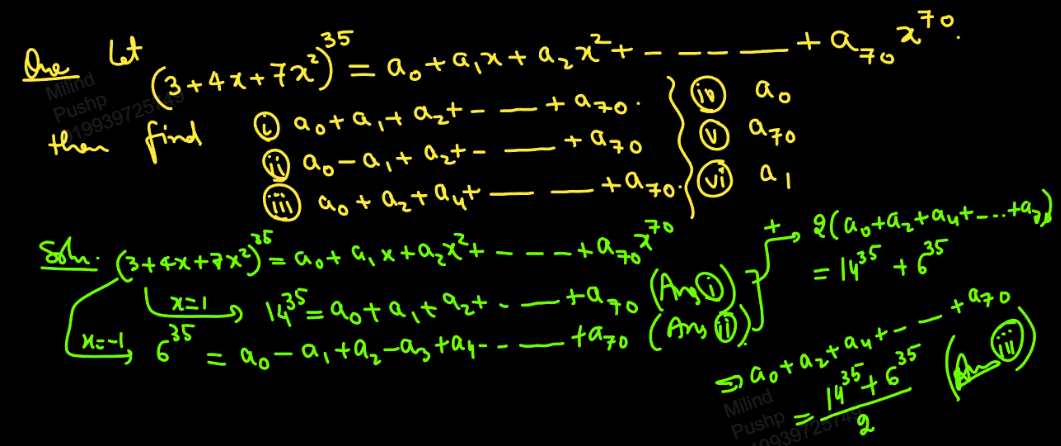 Que Let (3+4x+7x²)³⁵ = a₀+a₁x+a₂x²+ - - - - — + a₇₀x⁷⁰.
then find
(i) a₀+a₁+a₂+ - — + a₇₀.
(ii) a₀-a₁+a₂+ - — + a₇₀
(iii) a₀+a₂+a₄+ — — +a₇₀.
(iv) a₀
(v) a₇₀
(vi) a₁
Soln. (3+4x+7x²)³⁵ = a₀+a₁x+a₂x²+ - - — - +a₇₀x⁷⁰
x=1 → 14³⁵ = a₀+a₁+a₂+ - — +a₇₀ (Ans (i))
x=-1 → 6³⁵ = a₀-a₁+a₂-a₃+a₄- - - — +a₇₀ (Ans (ii))
+ → 2(a₀+a₂+a₄+-...+a₇₀)
= 14³⁵ + 6³⁵
⇒ a₀+a₂+a₄+ - - — +a₇₀
= (14³⁵+6³⁵)/2 (Ans (iii))
Milind
Pushp
Milind
Pushp